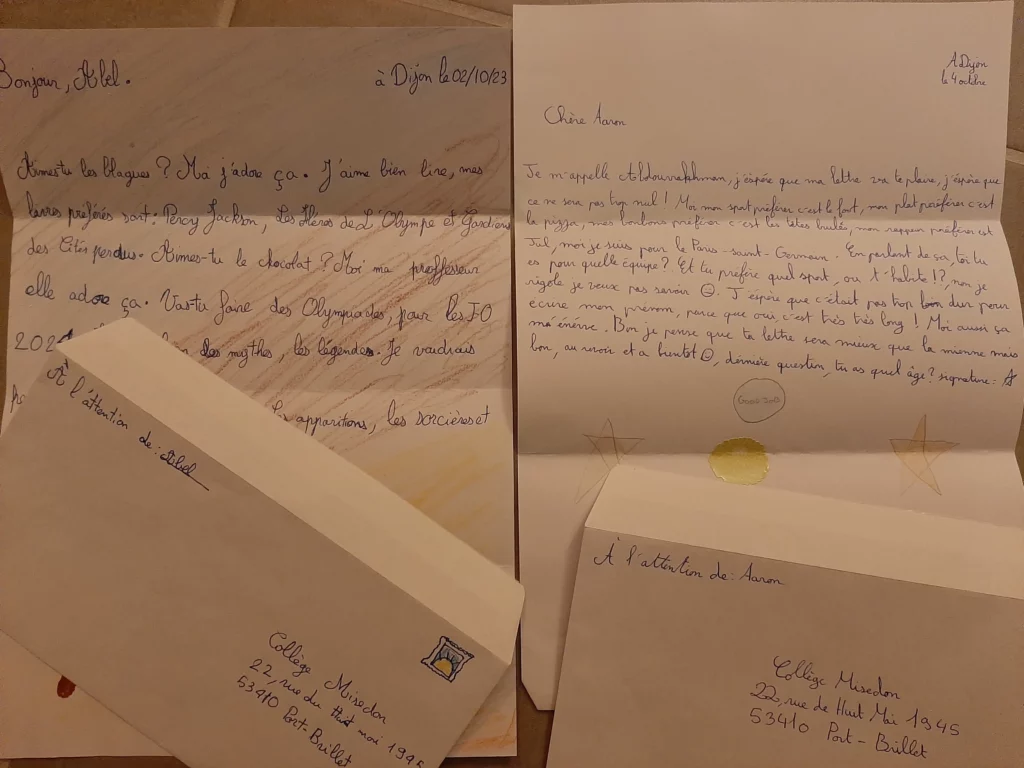 Bonjour, Abel.
à Dijon le 02/10/23
Aimes-tu les blagues ? Moi j'adore ça. J'aime bien lire, mes
livres préférés sont : Percy Jackson, Les Héros de L'Olympe et Gardiens
des Cités perdus. Aimes-tu le chocolat ? Moi ma proffesseur
elle adore ça. Vas-tu faire des Olympiades, pour les J-O
202
des mythes, les légendes. Je voudrais
apparitions, les sorcières et
À l'attention de : Abel
Collège Misedon
22, rue du Huit mai 1945
53410 Port-Brillet
A Dijon
le 4 octobre
Chère Aaron
Je m'appelle Abdourrahman, j'éspère que ma lettre va te plaire, j'éspère que
ce ne sera pas trop nul ! Moi mon sport préférer c'est le foot, mon plat préférer c'est
la pizza, mes bonbons préférer c'est les têtes brulé, mon rappeur préférer est
Jul, moi je suis pour le Paris-saint-Germain. En parlant de ça, toi tu
es pour quelle équipe ? Et tu préfère quel sport, ou t'habite !?, non je
rigole je veux pas savoir ☺. J'éspère que c'était pas trop dur pour
écrire mon prénom, parce que oui c'est très très long ! Moi aussi ça
m'a énervé. Bon je pense que ta lettre sera mieux que la mienne mais
bon, au revoir et a bientôt ☺, dernière question, tu as quel âge ? signature : A
À l'attention de : Aaron
Collège Misedon
22, rue de Huit Mai 1945
53410 Port-Brillet